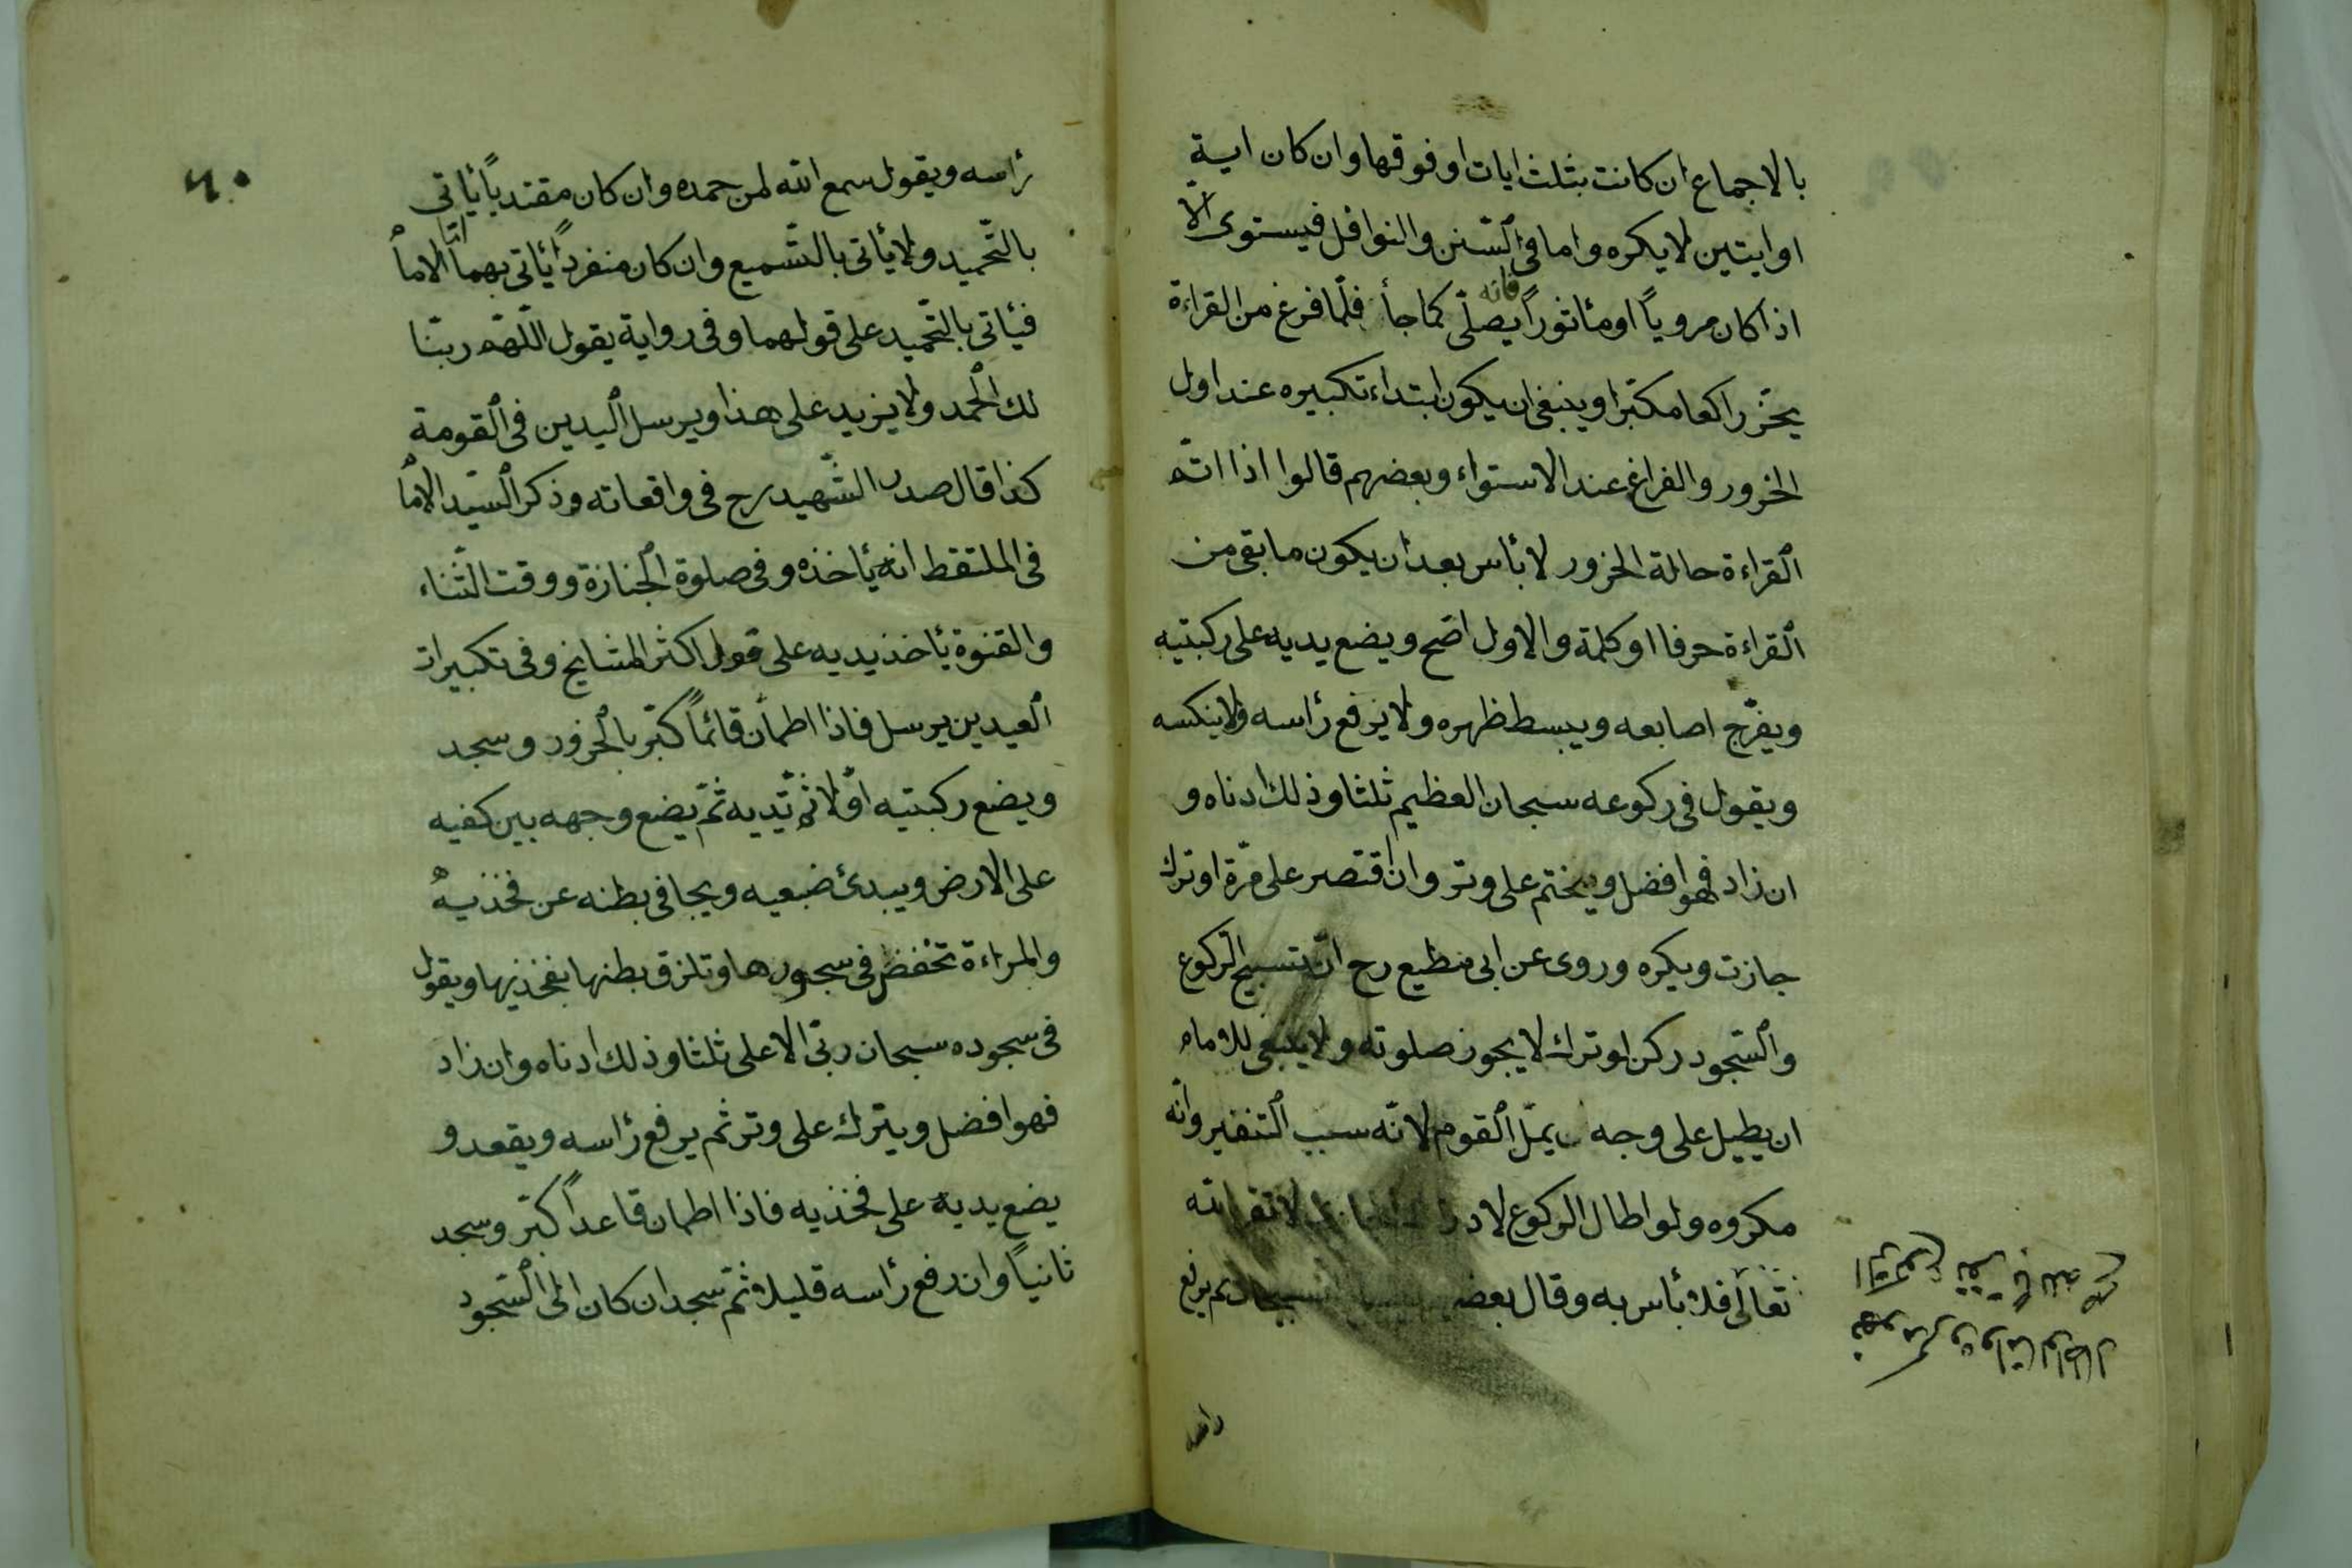 بالاجماع ان كانت بثلث ايات او فوقها وان كان اية
او ايتين لا يكره واما فى السّنن والنوافل فيستوى الّا
اذا كان مرويًا او مأثورًا فانه يصلّى كما جأ فلمّا فرغ من القراءة
يخرّ راكعا مكبّرا وينبغى ان يكون ابتداء تكبيره عند اول
الخرور والفراغ عند الاستواء وبعضهم قالوا اذا اتم
القراءة حالة الخرور لا بأس بعد ان يكون ما بقى من
القراءة حرفا او كلمة والاول اصّح ويضع يديه على ركبتيه
ويفرّج اصابعه ويبسط ظهره ولا يرفع رأسه ولا ينكسه
ويقول فى ركوعه سبحان العظيم ثلثا وذلك ادناه و
ان زاد فهو افضل ويختم على وتر وان اقتصر على مرّة او ترك
جازت ويكره وروى عن ابى مطيع رح انّ تسبيح الركوع
والسّجود ركن لو ترك لا يجوز صلوته ولا ينبغى للامام
ان يطيل على وجه يملّ القوم لانّه سبب التنفير وانّه
مكروه ولو اطال الركوع لا تقرّبا لله
تعالى فلا بأس به وقال ثم يرفع
رأسه
٦٠
رأسه ويقول سمع الله لمن حمده وان كان مقتديًا يأتى
بالتّحميد ولا يأتى بالتّسميع وان كان منفردًا يأتى بهما امّا الامام
فيأتى بالتّحميد على قولهما وفى رواية يقول اللّهم ربّنا
لك الحمد ولا يزيد على هذا ويرسل اليدين فى القومة
كذا قال صدر الشّهيد رح فى واقعاته وذكر السّيد الامام
فى الملتقط انه يأخذه وفى صلوة الجنازة ووقت الثّناء
والقنوة يأخذ يديه على قول اكثر المشايخ وفى تكبيرات
العيدين يرسل فاذا اطمأن قائمًا كبّر بالخرور وسجد
ويضع ركبتيه اوّلا ثم يّديه ثمّ يضع وجهه بين كفيه
على الارض ويبدئ ضبعيه ويجافى بطنه عن فخذيه
والمراءة تخفض فى سجودها وتلزق بطنها بفخذيها ويقول
فى سجوده سبحان ربّى الاعلى ثلثا وذلك ادناه وان زاد
فهو افضل ويترك على وتر ثم يرفع رأسه ويقعد و
يضع يديه على فخذيه فاذا اطمان قاعدًا كبّر وسجد
ثانيًا وان رفع رأسه قليلا ثمّ سجد ان كان الى السّجود